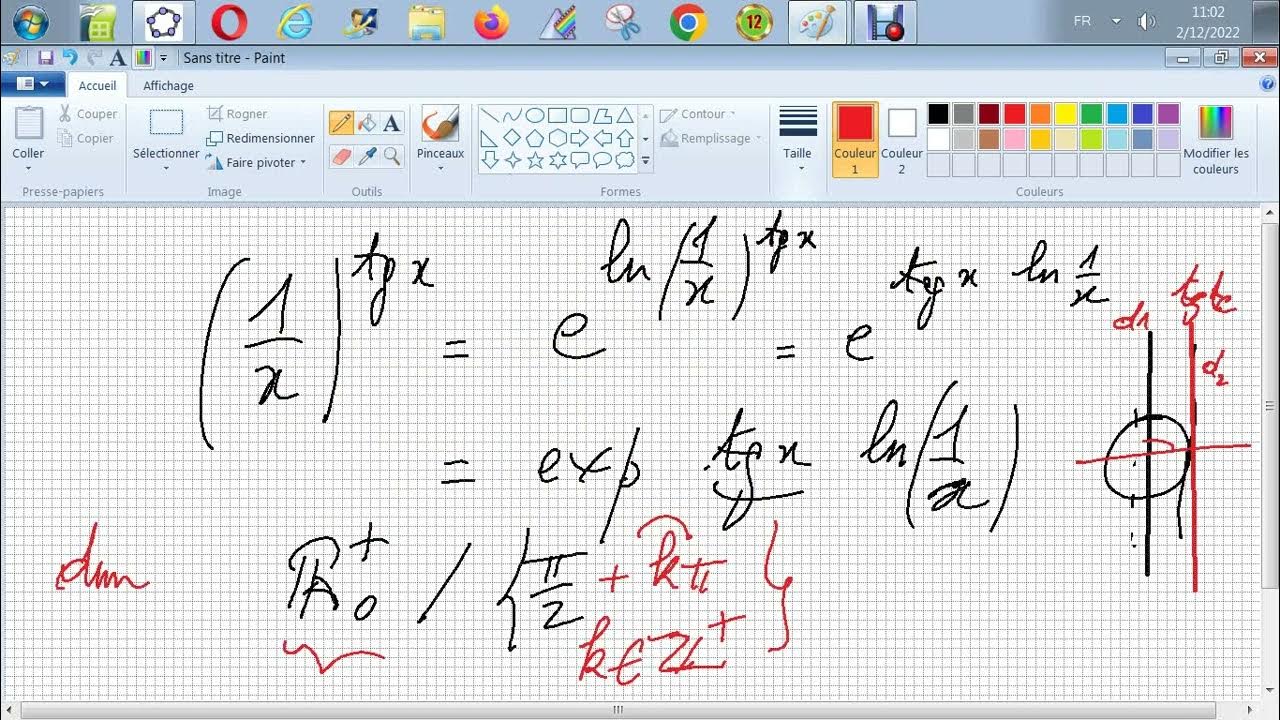 FR
11:02
2/12/2022
12
Sans titre - Paint
Accueil Affichage
Coller
Couper
Copier
Presse-papiers
Sélectionner
Rogner
Redimensionner
Faire pivoter
Image
A
Outils
Pinceaux
Contour
Remplissage
Formes
Taille
Couleur 1
Couleur 2
Modifier les couleurs
Couleurs
(1/x)^tg x = e^ln(1/x)^tg x = e^tg x ln 1/x
= exp tg x ln(1/x)
d1
d2
dm ℝ₀⁺ / {π/2 + kπ
k∈ℤ⁺}